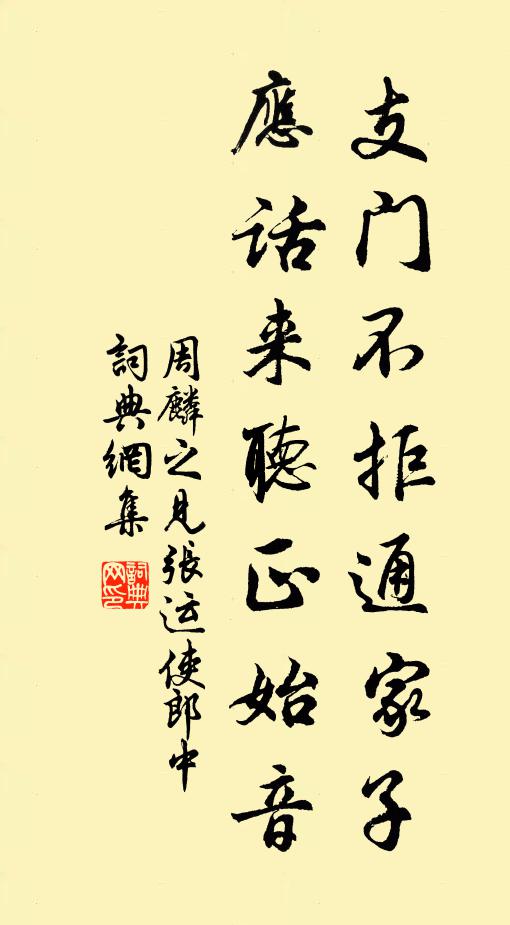 支门不拒通家子
應話来聽正始音
周麟之見張运使郎中
詞典網集
詞典网印